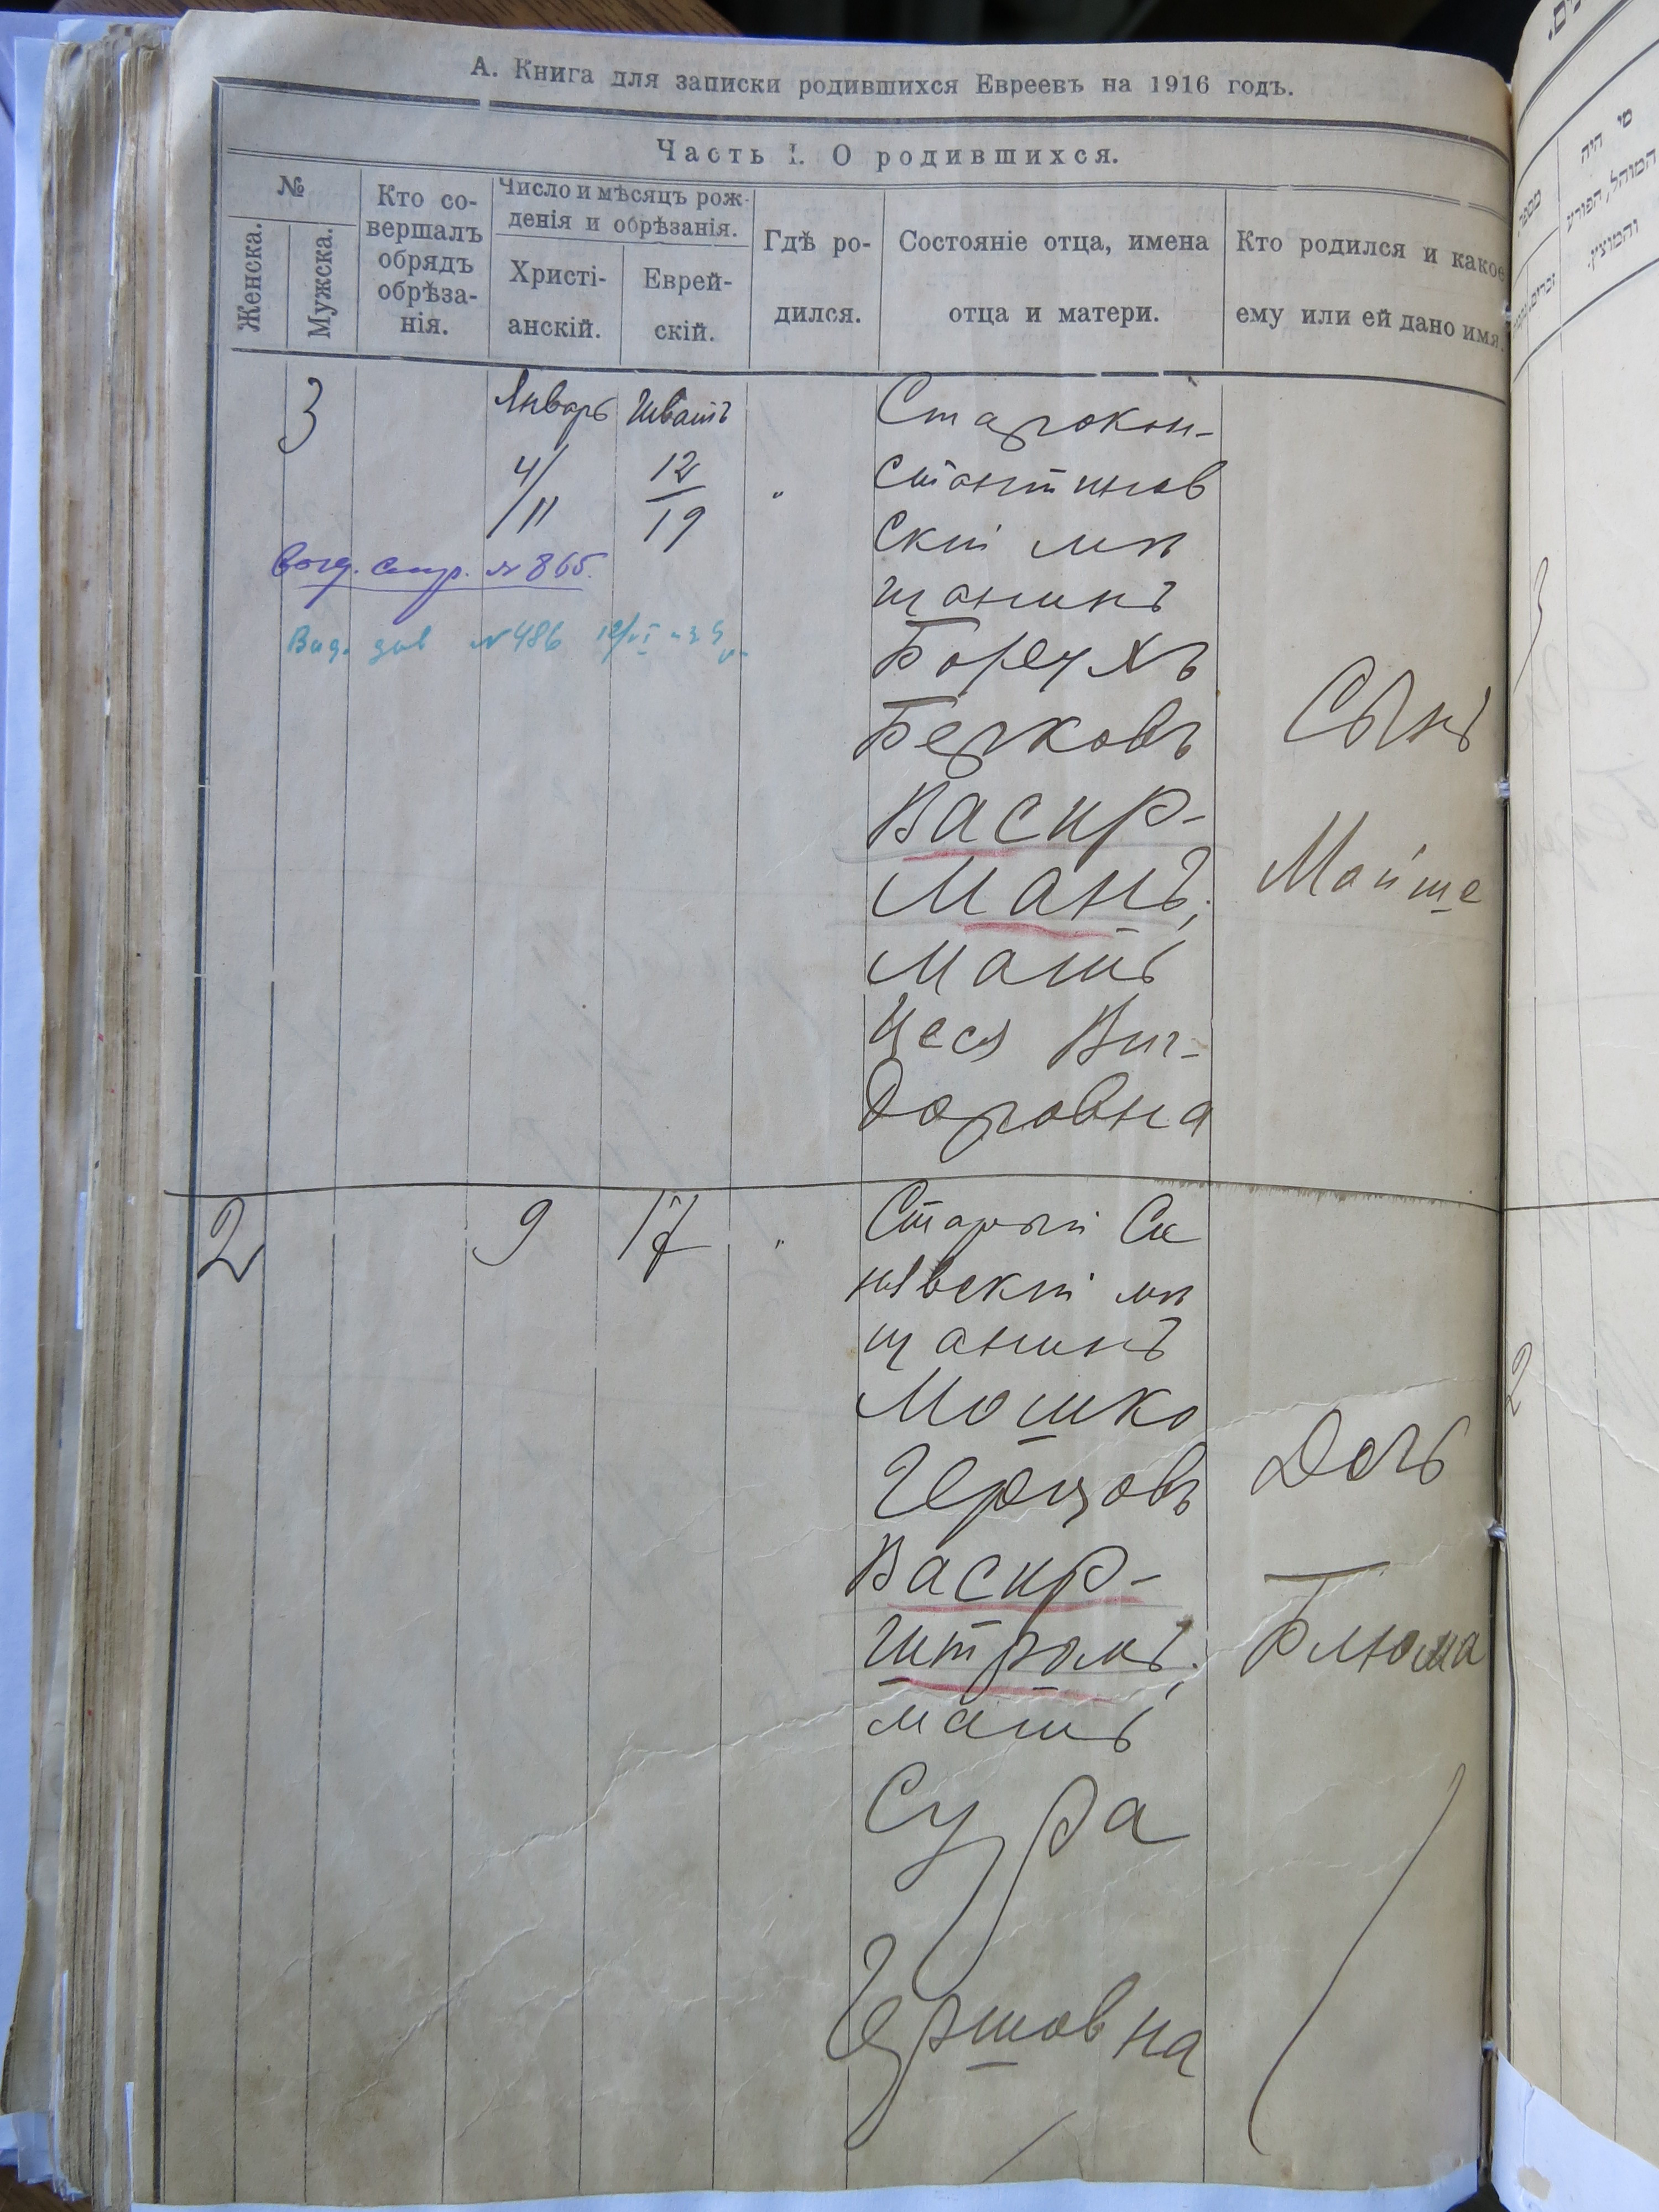 А. Книга для записки родившихся Евреевъ на 1916 годъ.
Часть I. О родившихся.
№
Женска.
Мужска.
Кто со-
вершалъ
обрядъ
обрѣза-
нія.
Число и мѣсяцъ рож-
денія и обрѣзанія.
Христі-
анскій.
Еврей-
скій.
Гдѣ ро-
дился.
Состояніе отца, имена
отца и матери.
Кто родился и какое
ему или ей дано имя.
3
Январь
4/11
Шватъ
12
19
"
Старокон-
стантинов
скій мѣ
щанинъ
Борухъ
Берковъ
Васир-
манъ,
мать
Цеся Виг-
доровна
Сынъ
Мойше
№ 865.
Выд. № 486
2
9
17
"
Старый Си
нявскій мѣ
щанинъ
Мошко
Герцовъ
Васир-
штромъ,
мать
Сура
Гершовна
Дочь
Блюма
מי היה
המוהל, הפורע
והמוציץ.
מספר
3
2